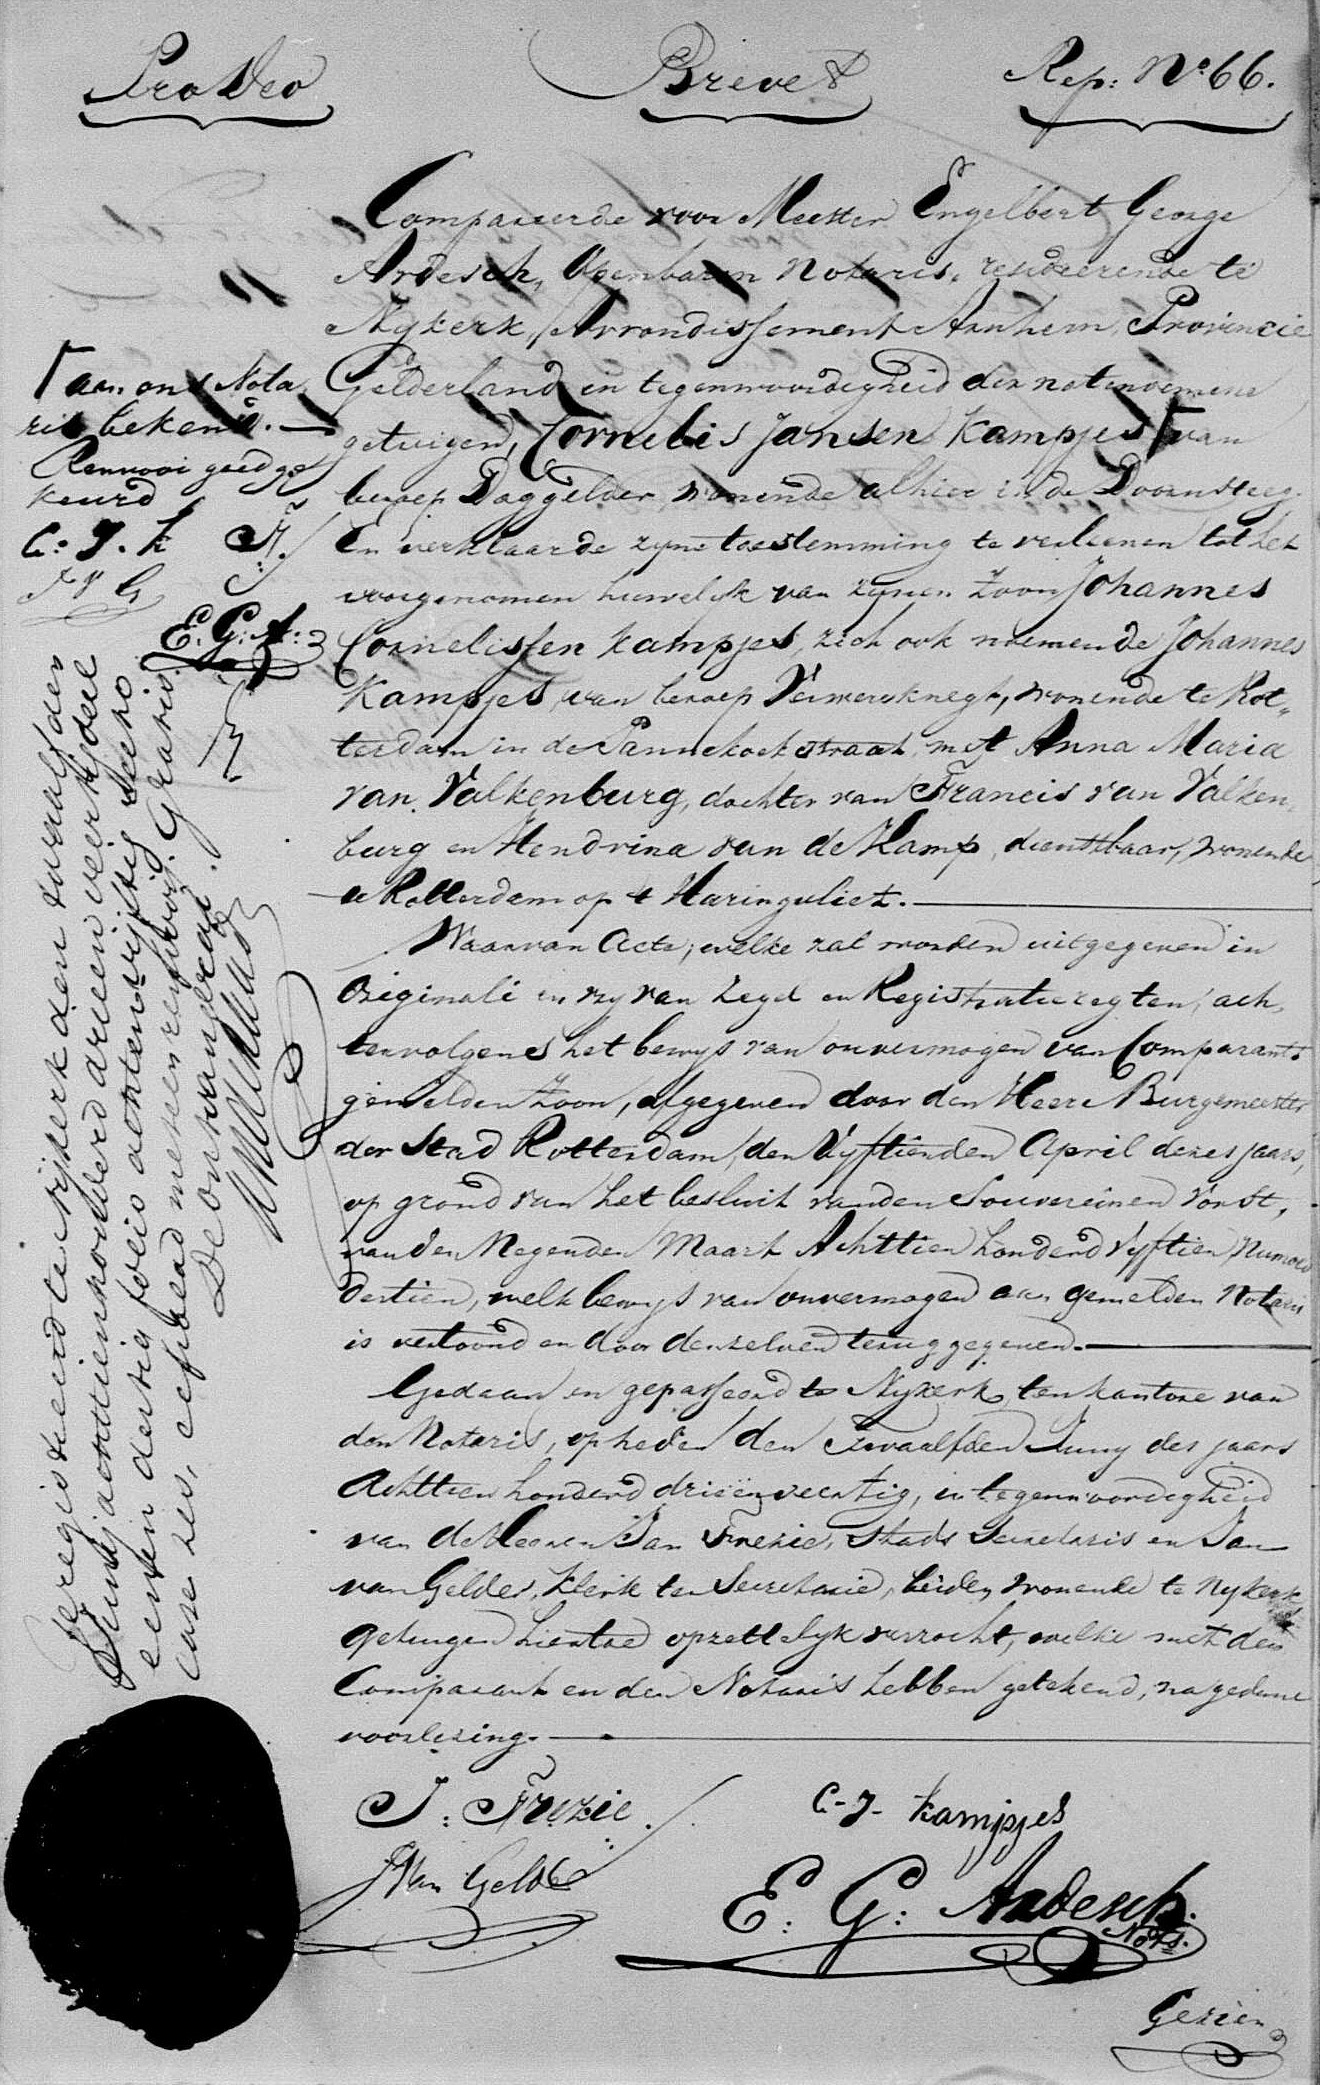 Pro Deo
Brevet
Rep: No. 66.
Compareerde voor Meester Engelbert George
Ardesch, Openbaren Notaris, resideerende te
Nykerk, Arrondissement Arnhem, Provincie
Gelderland in tegenwoordigheid der natenoemene
getuigen, Cornelis Jansen Kampjes Γ van
beroep Daggelder, wonende alhier in de Doornsteeg.
En verklaarde zyne toestemming te verleenen tot het
voorgenomen huwelyk van zynen Zoon Johannes
Cornelissen Kampjes, zich ook noemende Johannes
Kampjes, van beroep Verwersknegt, wonende te Rot„
terdam in de Pannekoekstraat, met Anna Maria
van Valkenburg, dochter van Francis van Valken„
burg en Hendrina van de Kamp, dienstbaar, wonende
te Rotterdam op 't Haringvliet.
Waarvan Acte, welke zal worden uitgegeven in
Originali en vry van Zegel en Registratieregten, ach„
tervolgens het bewys van onvermogen van Comparants
gemelden Zoon, afgegeven door den Heere Burgemeester
der Stad Rotterdam, den Vyftienden April dezes jaars,
op grond van het besluit van den Souvereinen Vorst,
van den Negenden Maart Achttien honderd Vyftien, Numero
dertien, welk bewys van onvermogen aan gemelden Notaris
is vertoond en door denzelven terug gegeven.
Gedaan en gepasseerd te Nykerk, ten kantore van
den Notaris, op heden den Twaalfden Juny des jaars
Achttien honderd drieënveertig, in tegenwoordigheid
van de Heeren Jan Frezie, Stads Secretaris en Jan
van Gelder, Klerk ter Secretarie, beiden wonende te Nykerk
getuigen hiertoe opzettelyk verzocht, welke met den
Comparant en den Notaris hebben getekend, na gedane
voorlezing.
J: Frezie.
C-J- Kampjes
J Van Gelder
E: G: Ardesch.
Nots.
Gezien
Γ aan ons Nota
ris bekend.
Renvooi goedge
keurd
C: J. K J. F.
J V G
E. G. A:
Geregistreerd te Nijkerk den twaalfden
Junij achttienhonderd drieen veertig deel
een en dertig folio achtenvijftig recto
case zes, een blad met een renvooi. Gratis.
De ontvanger